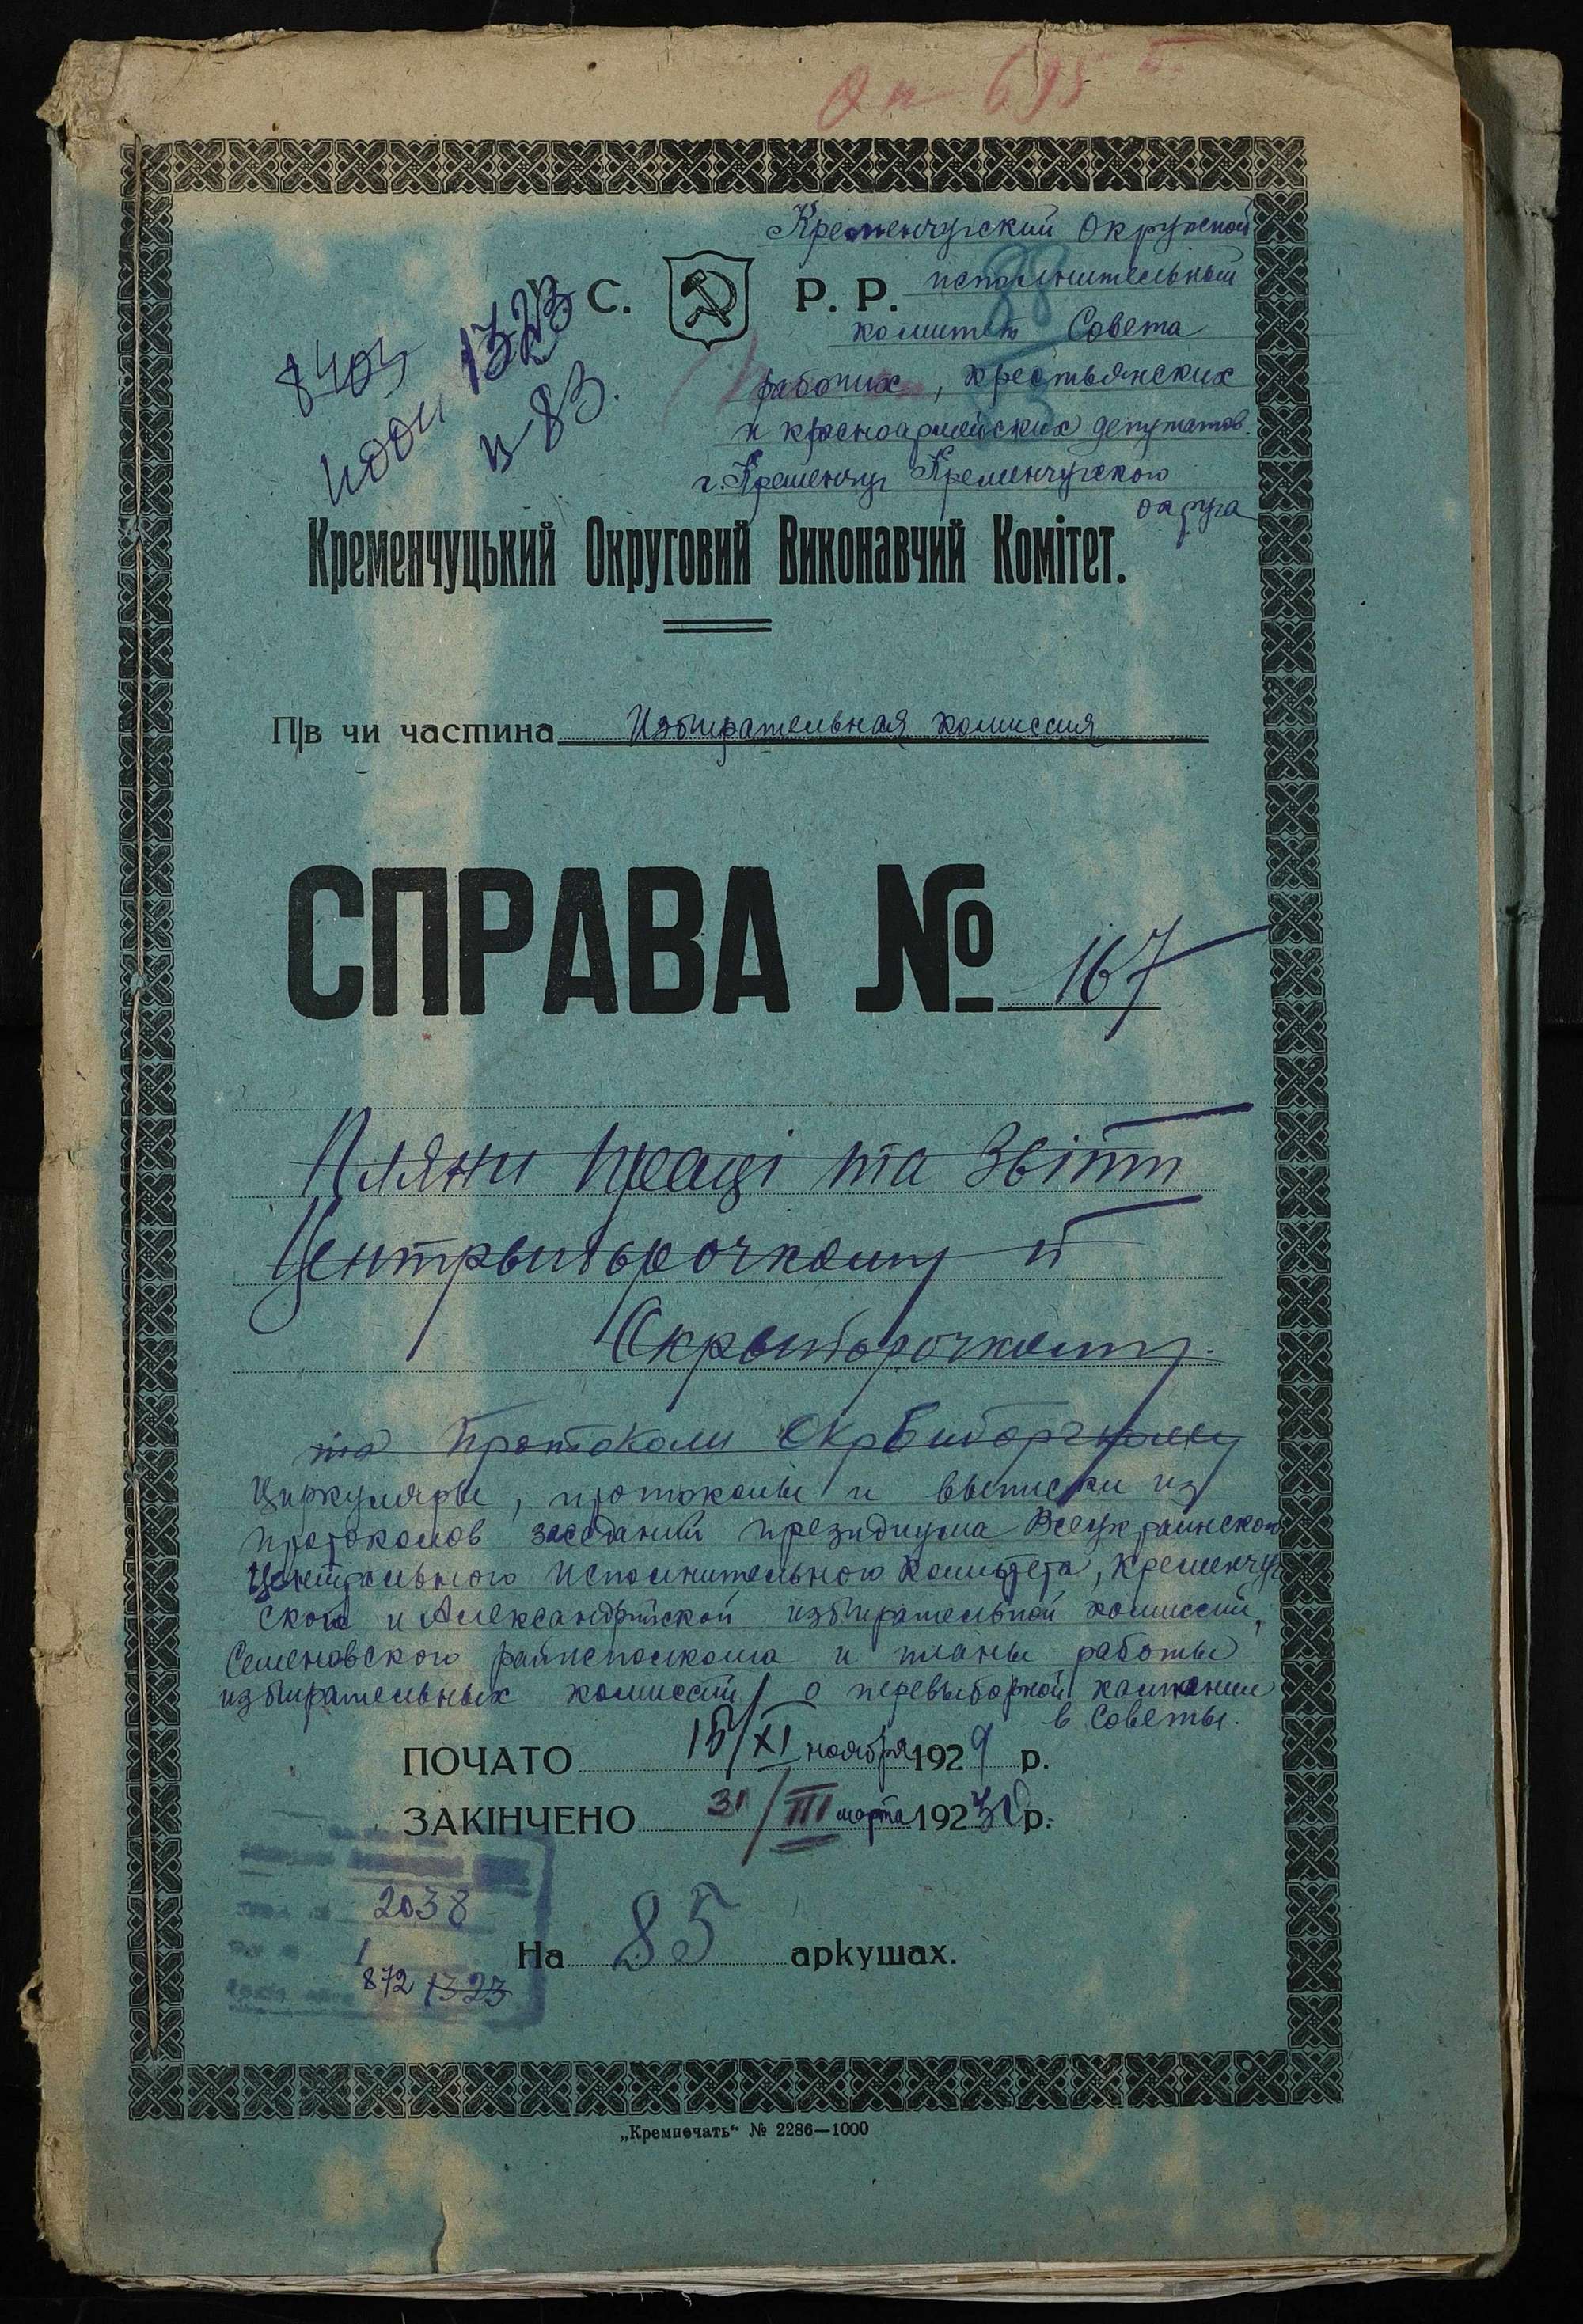 Оп 695
Кременчугский Окружной
С. Р. Р. исполнительный
комитет Совета
рабочих, крестьянских
и красноармейских депутатов.
г. Кременчуг Кременчугского
округа
1323
ц-83.
Кременчуцький Округовий Виконавчий Комітет.
П/в чи частина Избирательная комиссия
СПРАВА № 167
Пляни праці та Звіти
Центрвиборчкому й
Окрвиборчкому.
та Протоколи Окрвиборчкому
Циркуляры, протоколы и выписки из
протоколов заседаний президиума Всеукраинского
Центрального Исполнительного Комитета, Кременчуг
ской и Александрийской избирательной комиссий,
Семеновского райисполкома и планы работы
избирательных комиссий о перевыборной кампании
в Советы.
ПОЧАТО 15/XI ноября 1929 р.
ЗАКІНЧЕНО 31/III марта 19230 р.
2038
1
872 1323
На 85 аркушах.
„Кремпечать“ № 2286—1000